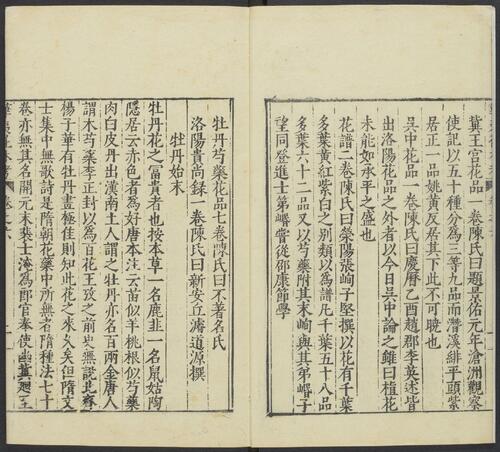 冀王宮花品一卷陳氏曰題景佑元年滄洲觀察
使記以五十種分為三等九品而潛溪緋平頭紫
居正一品姚黃反居其下此不可曉也
吳中花品一卷陳氏曰慶曆乙酉趙郡李英述皆
出洛陽花品之外者以今日吳中論之雖曰植花
未能如承平之盛也
花譜二卷陳氏曰滎陽張峋子堅撰以花有千葉
多葉黃紅紫白之別類以為譜凡千葉五十八品
多葉六十二品又以芍藥附其末峋與其弟㟭子
望同登進士第㟭嘗從邵康節學
牡丹芍藥花品七卷陳氏曰不著名氏
洛陽貴尚錄一卷陳氏曰新安丘濬道源撰
牡丹始末
牡丹花之富貴者也按本草一名鹿韭一名鼠姑陶
隱居云亦色者為好唐本注云苗似羊桃根似芍藥
肉白皮丹出漢南土人謂之牡丹亦名百兩金唐人
謂木芍藥李正封以為百花王致之前史無說
楊子華有牡丹畫極佳則知此花之來久矣但隋文
士集中無歌詩是隋朝花藥中所無者隋種法七十
卷亦無其名開元末裴士淹為郎官奉使幽冀廻至
卷之六